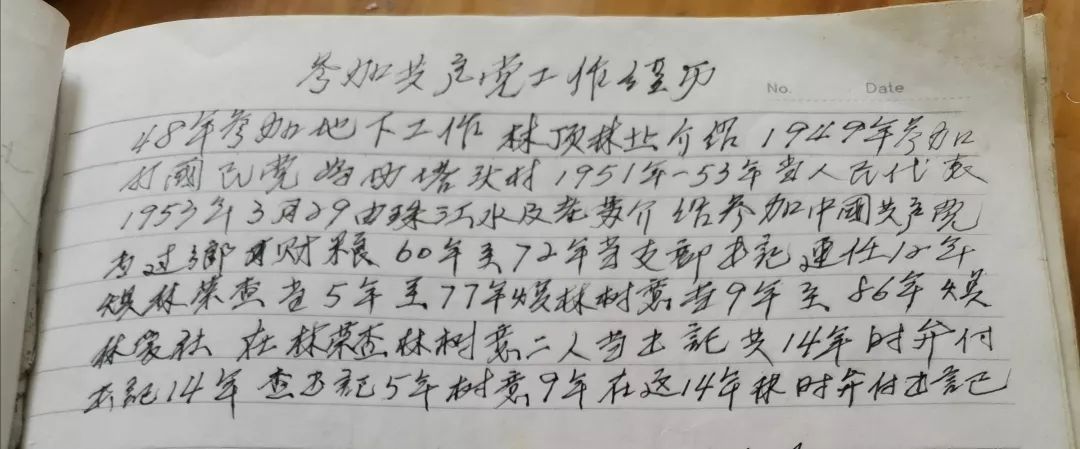 参加共产党工作经历
No. Date
48年参加地下工作 林顶林业介绍 1949年参加
打國民党 塔玖村 1951年-53年当人民代表
1953年3月29由珠江水及 介绍参加中國共产党
当过乡 财粮 60年至72年当支部书記連任12年
林荣查当5年至77年焕林树意当9年至86年焕
林家社 在林荣查林树意二人当書記共14年时弃付
書記14年 查書記5年树意9年在这14年林时弃付書記